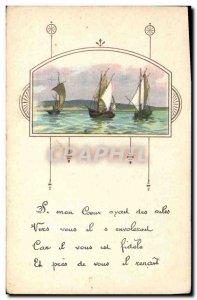 Si mon Cœur avait des ailes
Vers vous il s'envolerait
Car il vous est fidèle
Et près de vous il renaît